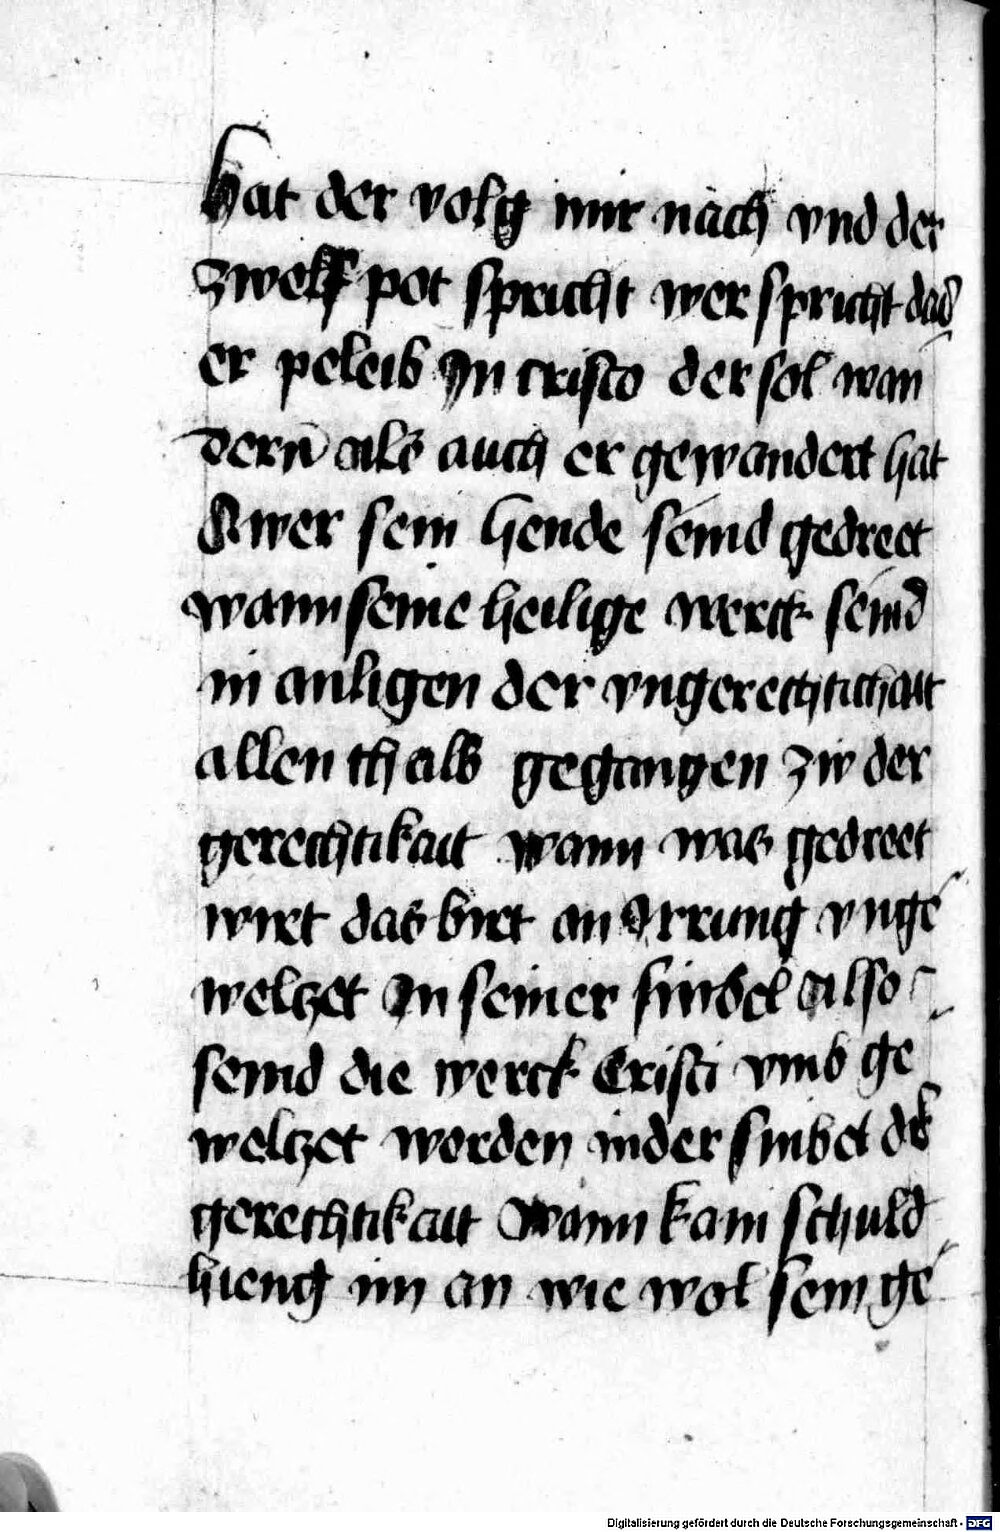 hat der volg mir nàch vnd der
zwelf pot spricht wer spricht das
er peleib Jn cristo der sol wan
dern̄ als auch er gewandert hat
Awer sein hende seind gedreet
wann seine heilige werck seind
in anligen der vngerechtichait
allenthalb gegangen zw der
gerechtikait wann was gedreet
wirt das birt an Jrrung vnge
weltzet Jn seiner sinbel also
seind die werck Cristi vmb ge
weltzet worden in der sinbel der
gerechtikait Wann kain schuld
hieng im an wie wol sein ge
Digitalisierung gefördert durch die Deutsche Forschungsgemeinschaft - DFG